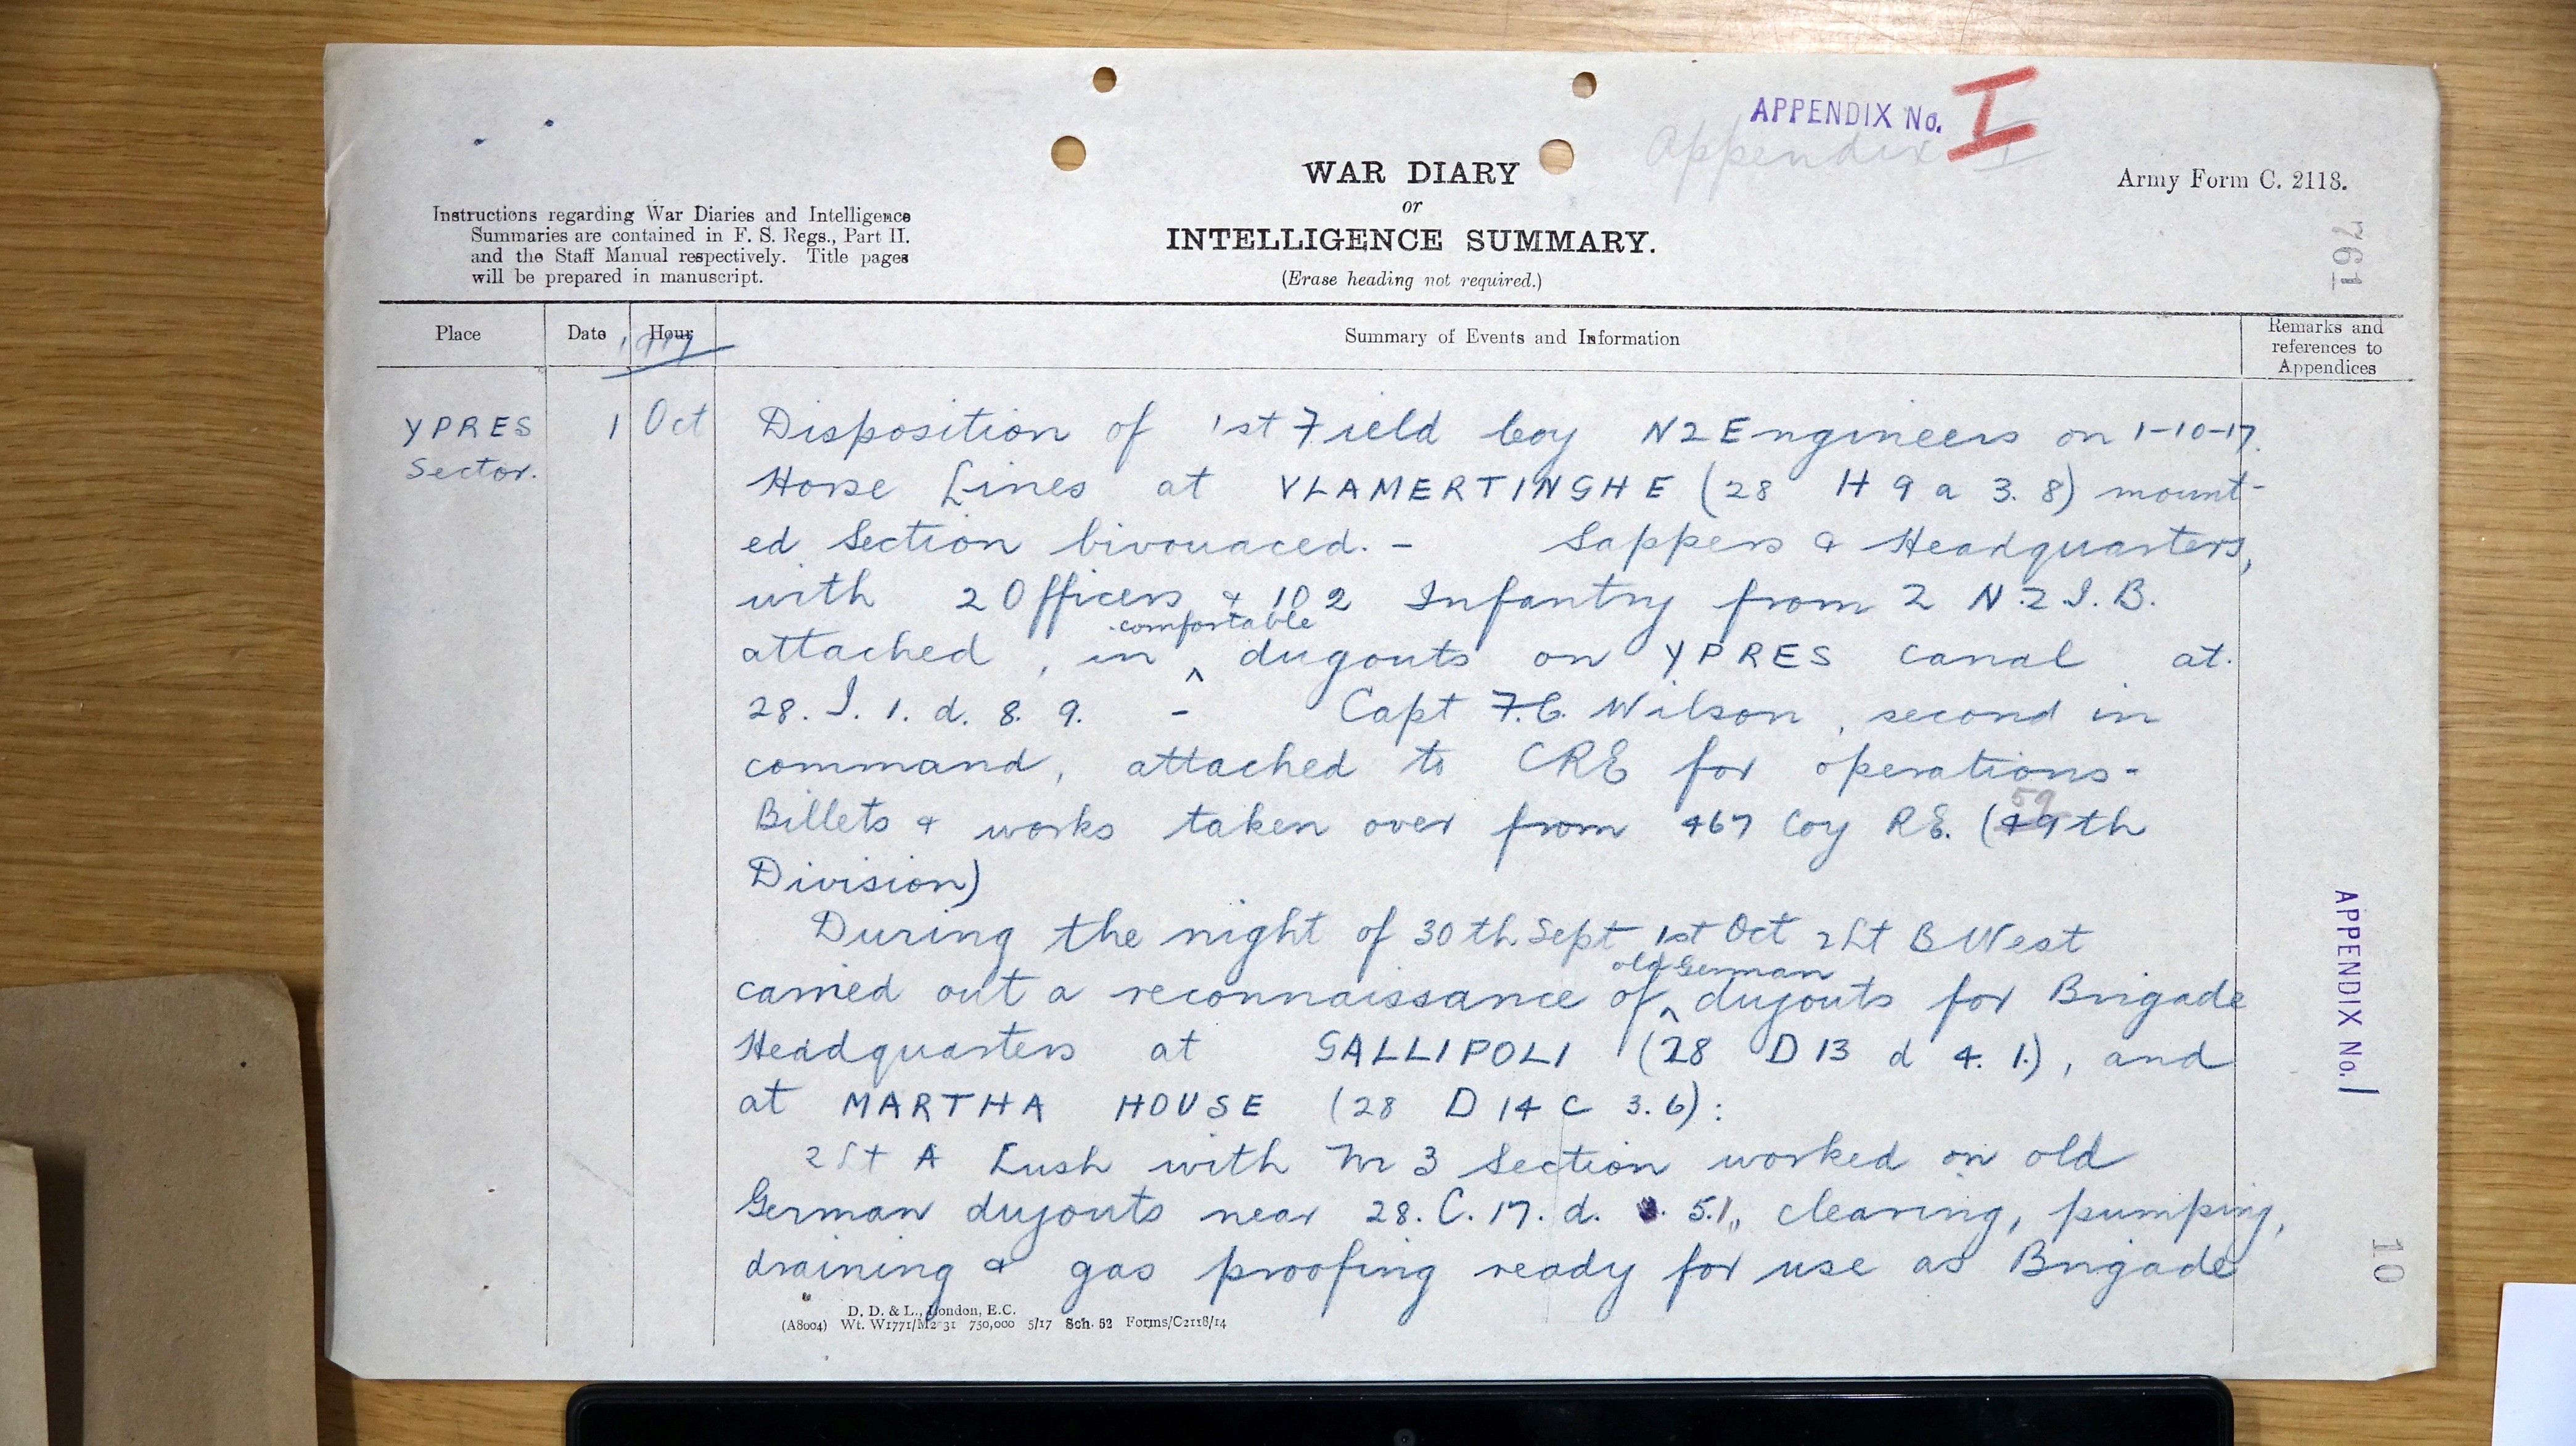 APPENDIX No. I
Appendix I
WAR DIARY
or
INTELLIGENCE SUMMARY.
(Erase heading not required.)
Army Form C. 2118.
761
Instructions regarding War Diaries and Intelligence
Summaries are contained in F. S. Regs., Part II.
and the Staff Manual respectively. Title pages
will be prepared in manuscript.
Place
Date
Hour
1917
Summary of Events and Information
Remarks and
references to
Appendices
YPRES
Sector.
1 Oct
Disposition of 1st Field Coy NZ Engineers on 1-10-17.
Horse Lines at VLAMERTINGHE (28 H 9 a 3. 8) mount-
ed Section bivouaced. - Sappers & Headquarters,
with 2 Officers & 102 Infantry from 2 N.Z.I.B.
attached, in ^ comfortable dugouts on YPRES canal at.
28. I. 1. d. 8. 9. - Capt F.C. Wilson, second in
command, attached to CRE for operations-
Billets & works taken over from 467 Coy RE. (49th 59
Division)
During the night of 30th Sept 1st Oct 2Lt B West
carried out a reconnaissance of ^ old German dugouts for Brigade
Headquarters at GALLIPOLI (28 D 13 d 4. 1.), and
at MARTHA HOUSE (28 D 14 C 3. 6):
2Lt A Lush with No 3 Section worked on old
German dugouts near 28. C. 17. d. 5.1., clearing, pumping,
draining & gas proofing ready for use as Brigade
APPENDIX No. 1
10
D. D. & L., London, E.C.
(A8004) Wt. W1771/M2 31 750,000 5/17 Sch. 52 Forms/C2118/14